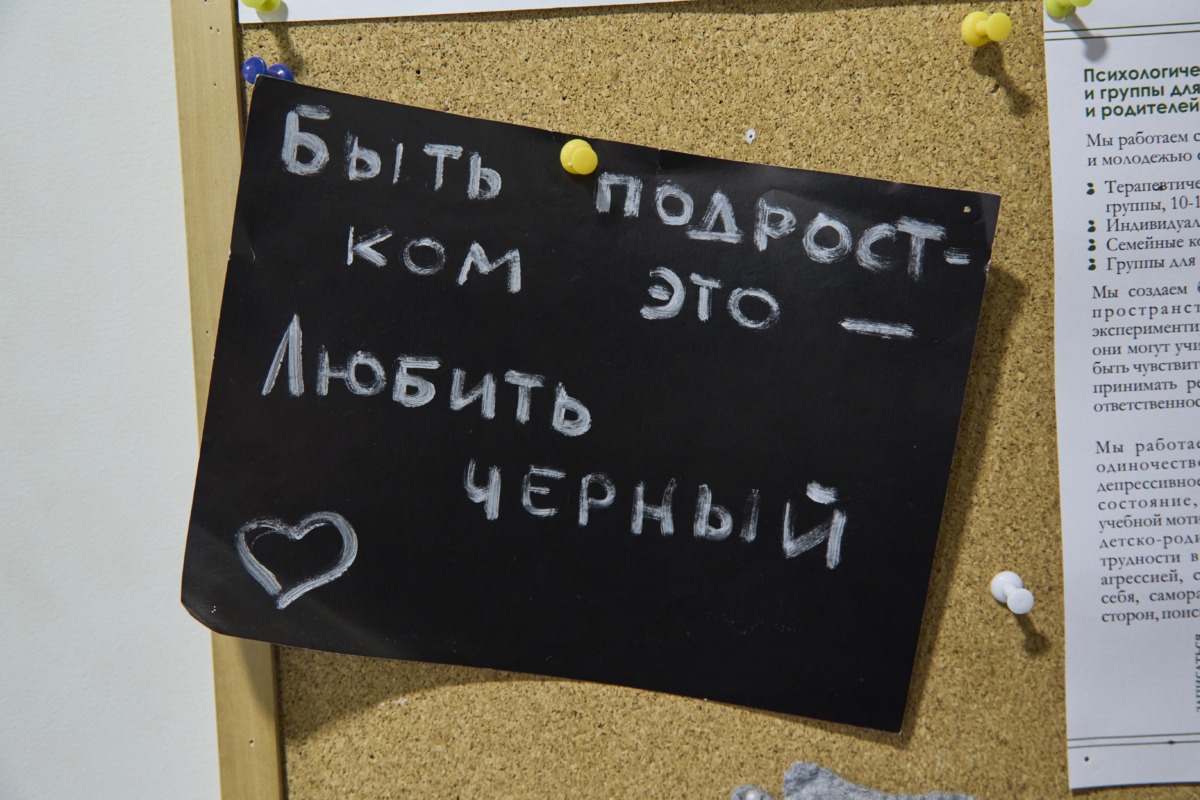 Быть подрост-
ком это —
Любить
черный
Психологиче
и группы для
и родителей
Мы работаем с
и молодежью
Терапевтиче
группы, 10-1
Индивидуал
Семейные к
Группы для
Мы создаем
пространст
эксперименти
они могут учи
быть чувствит
принимать ре
ответственнос
Мы работае
одиночеств
депрессивное
состояние,
учебной моти
детско-роди
трудности в
агрессией, с
себя, самора
сторон, поис